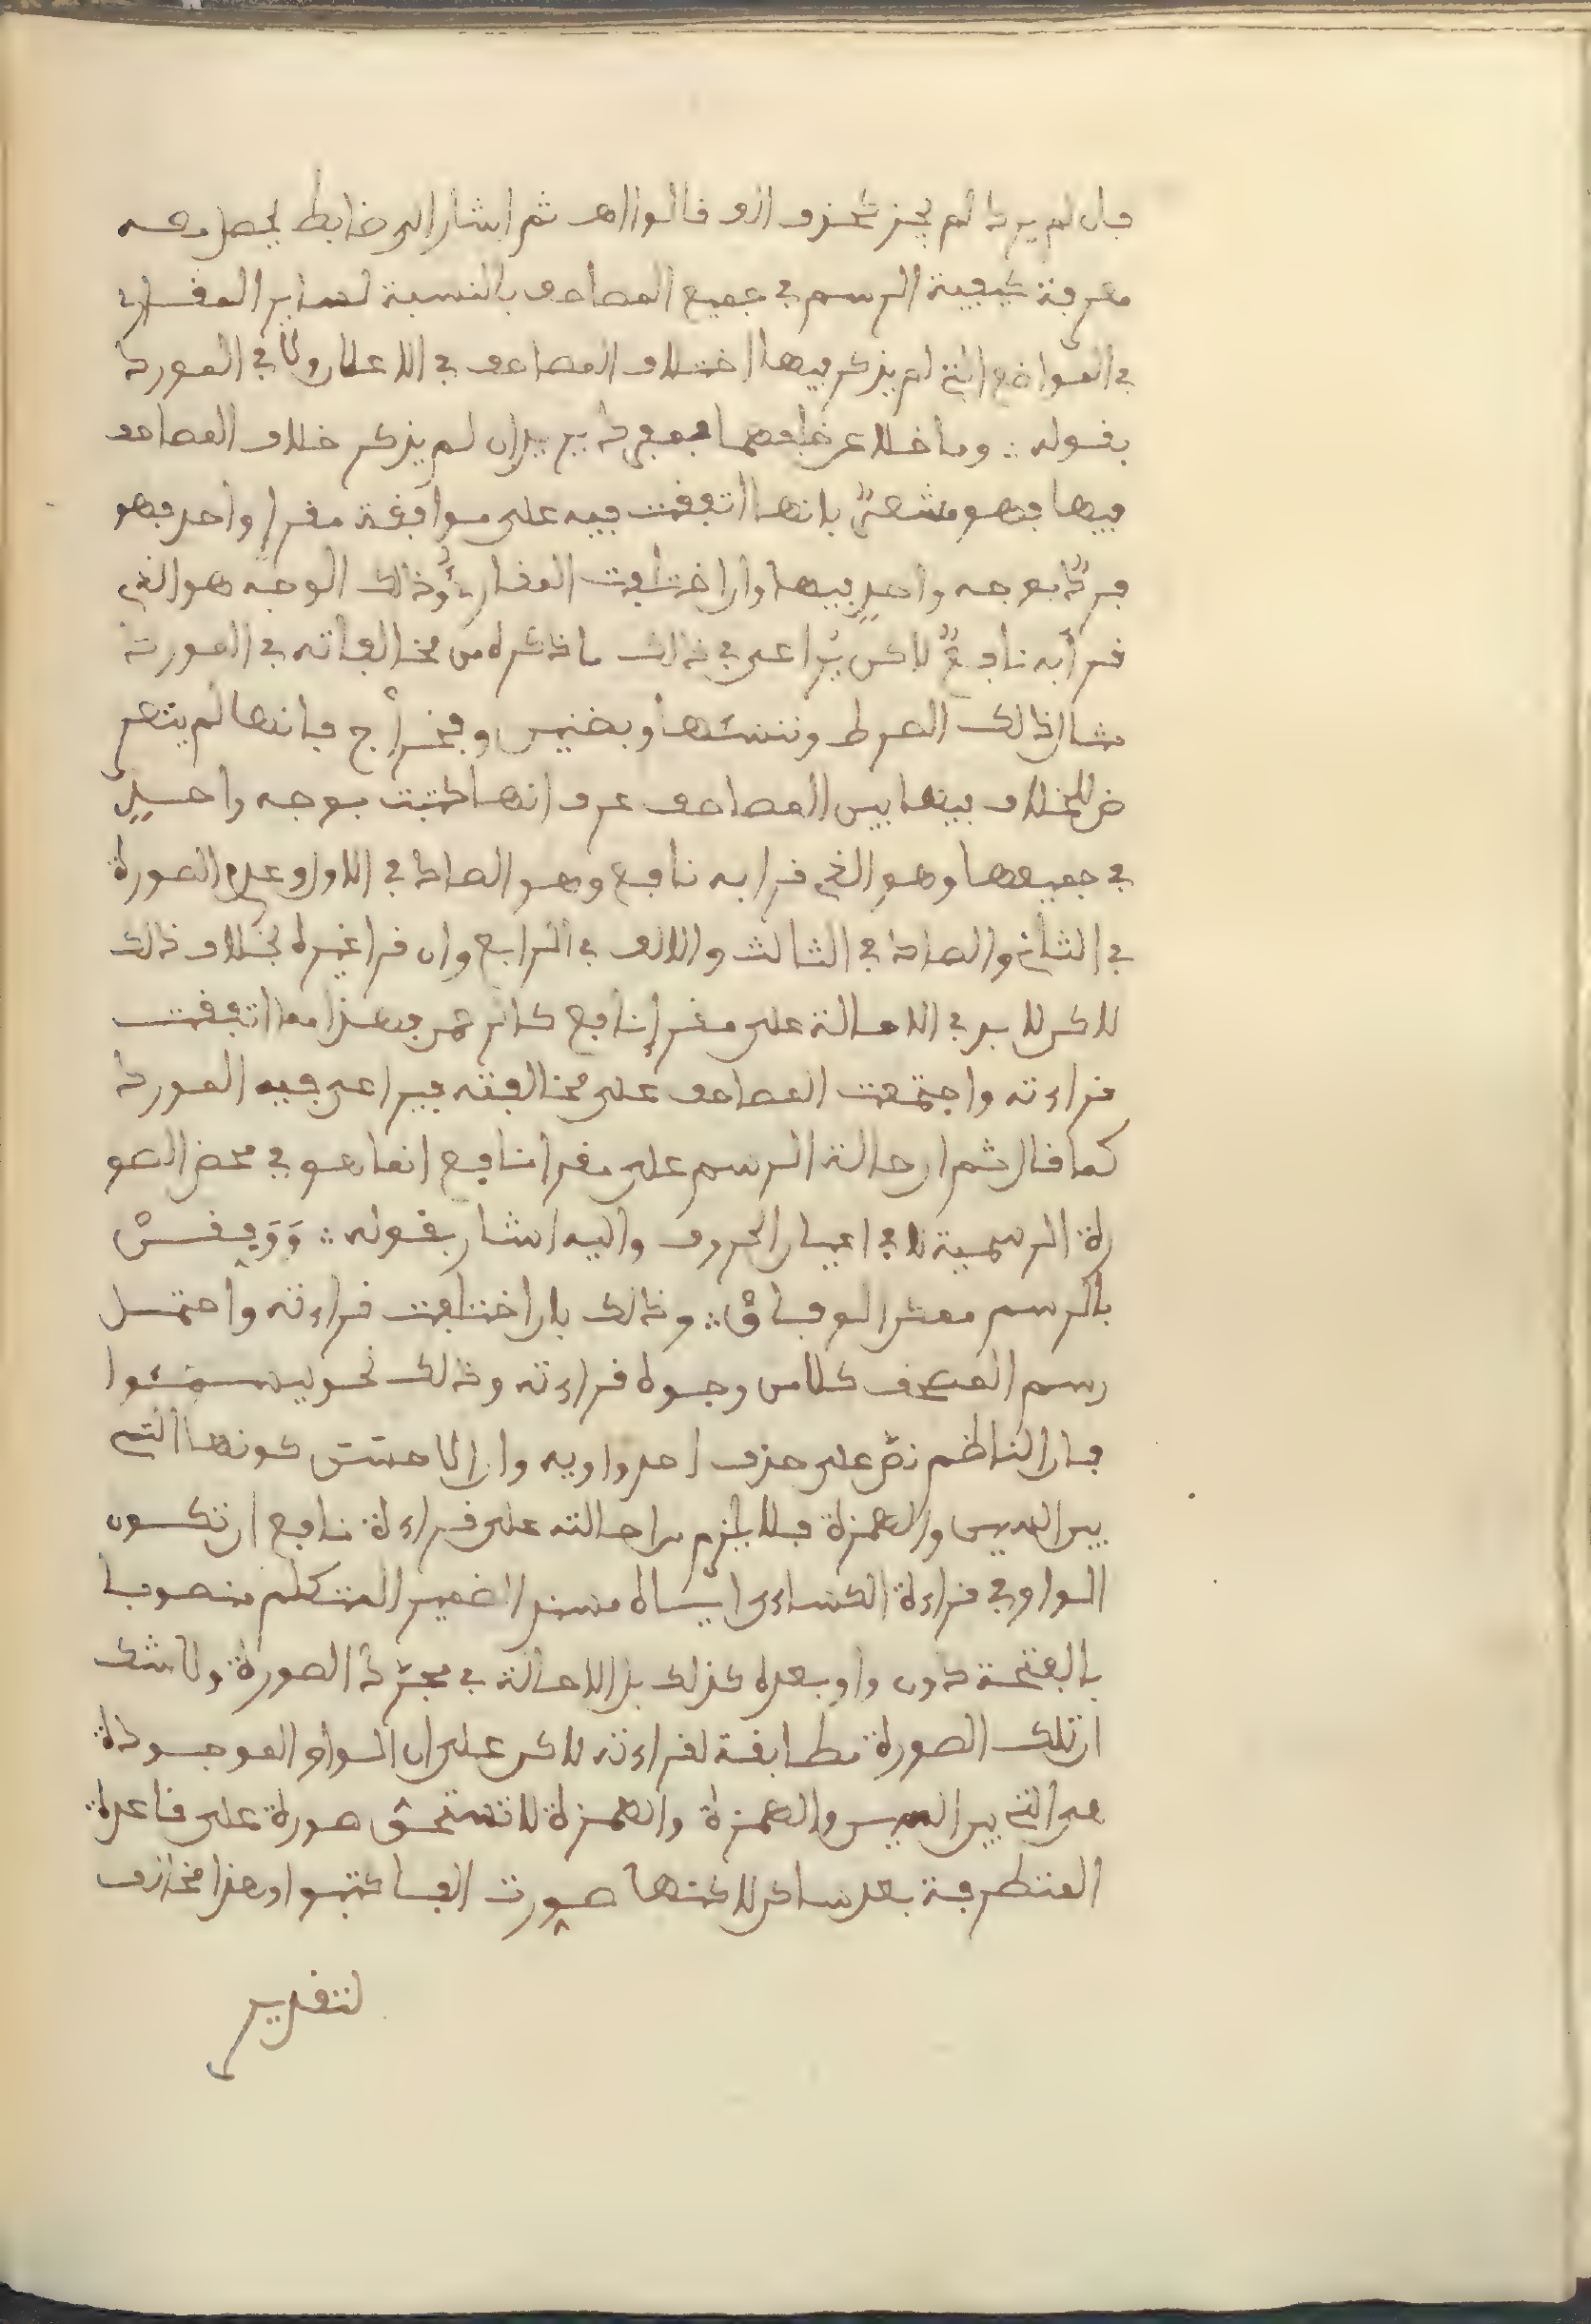 فان لم يرد لم يجز بحذف الف قالوا اهـ ثم اشار الى ضابط يحصل معه
معرفة كيفية الرسم في جميع المصاحف بالنسبة لسائر المقارئ
في المواضع التي لم يذكر فيها اختلاف المصاحف في الاعلان ولا في المورد
بقوله ؞ وما خلا عن خلفها فمفرد ؞ يريد ان لم يذكر خلاف المصاحف
فيها فهو مشعر بانها اتفقت فيه على موافقة مقرإ واحد فهو
فرد بوجه واحد فيها وان اختلفت المقارئ وذلك الوجه هو الذي
قرأ به نافع لاكن يراعى في ذلك ما ذكره من مخالفاته في المورد
مثال ذلك الصرط وننسئها وبضنين وفخرٰج فانها لم يتعر
ض للخلاف فيها بين المصاحف عرف انها كتبت بوجه واحد
في جميعها وهو الذي قرا به نافع وهو الصاد في الاول وعدم الصورة
في الثاني والضاد في الثالث والالف في الرابع وان قرا غيره بخلاف ذلك
لاكن لا بد في الاحالة على مقرإ نافع كان من جهة ما اتفقت
قراءته واجتمعت المصاحف على مخالفته فيراعى فيه المورد
كما قال ثم ان حالة الرسم على مقرا نافع انما هو في محض الصو
رة الرسمية لا في اعيان الحروف واليه اشار بقوله ؞ وَوَفِفسْ
بالرسم معنى الوفاقْ ؞ وذلك بان اختلفت قراءته واحتمل
رسم المصحف كلا من وجوه قراءته وذلك نحو ليسـُٔوا
فان الناظم نص على حذف احد واويه وان الاحسن كونها التي
بين السين والهمزة فلا يلزم من احالته على قراءة نافع ان تكون
الواو في قراءة الكساءى اياه مسندا لضمير المتكلم منصوبا
بالفتحة دون واو بعده كذلك بل الاحالة في مجرد الصورة ولا شك
ان تلك الصورة مطابقة لقراءته لاكن على ان الواو الموجودة
هي التي بين السين والهمزة والهمزة لا تستحق صورة على قاعدة
المتطرفة بعد ساكن لاكنها صورت الفا كتبوا وهذا مخالف
لتقرير